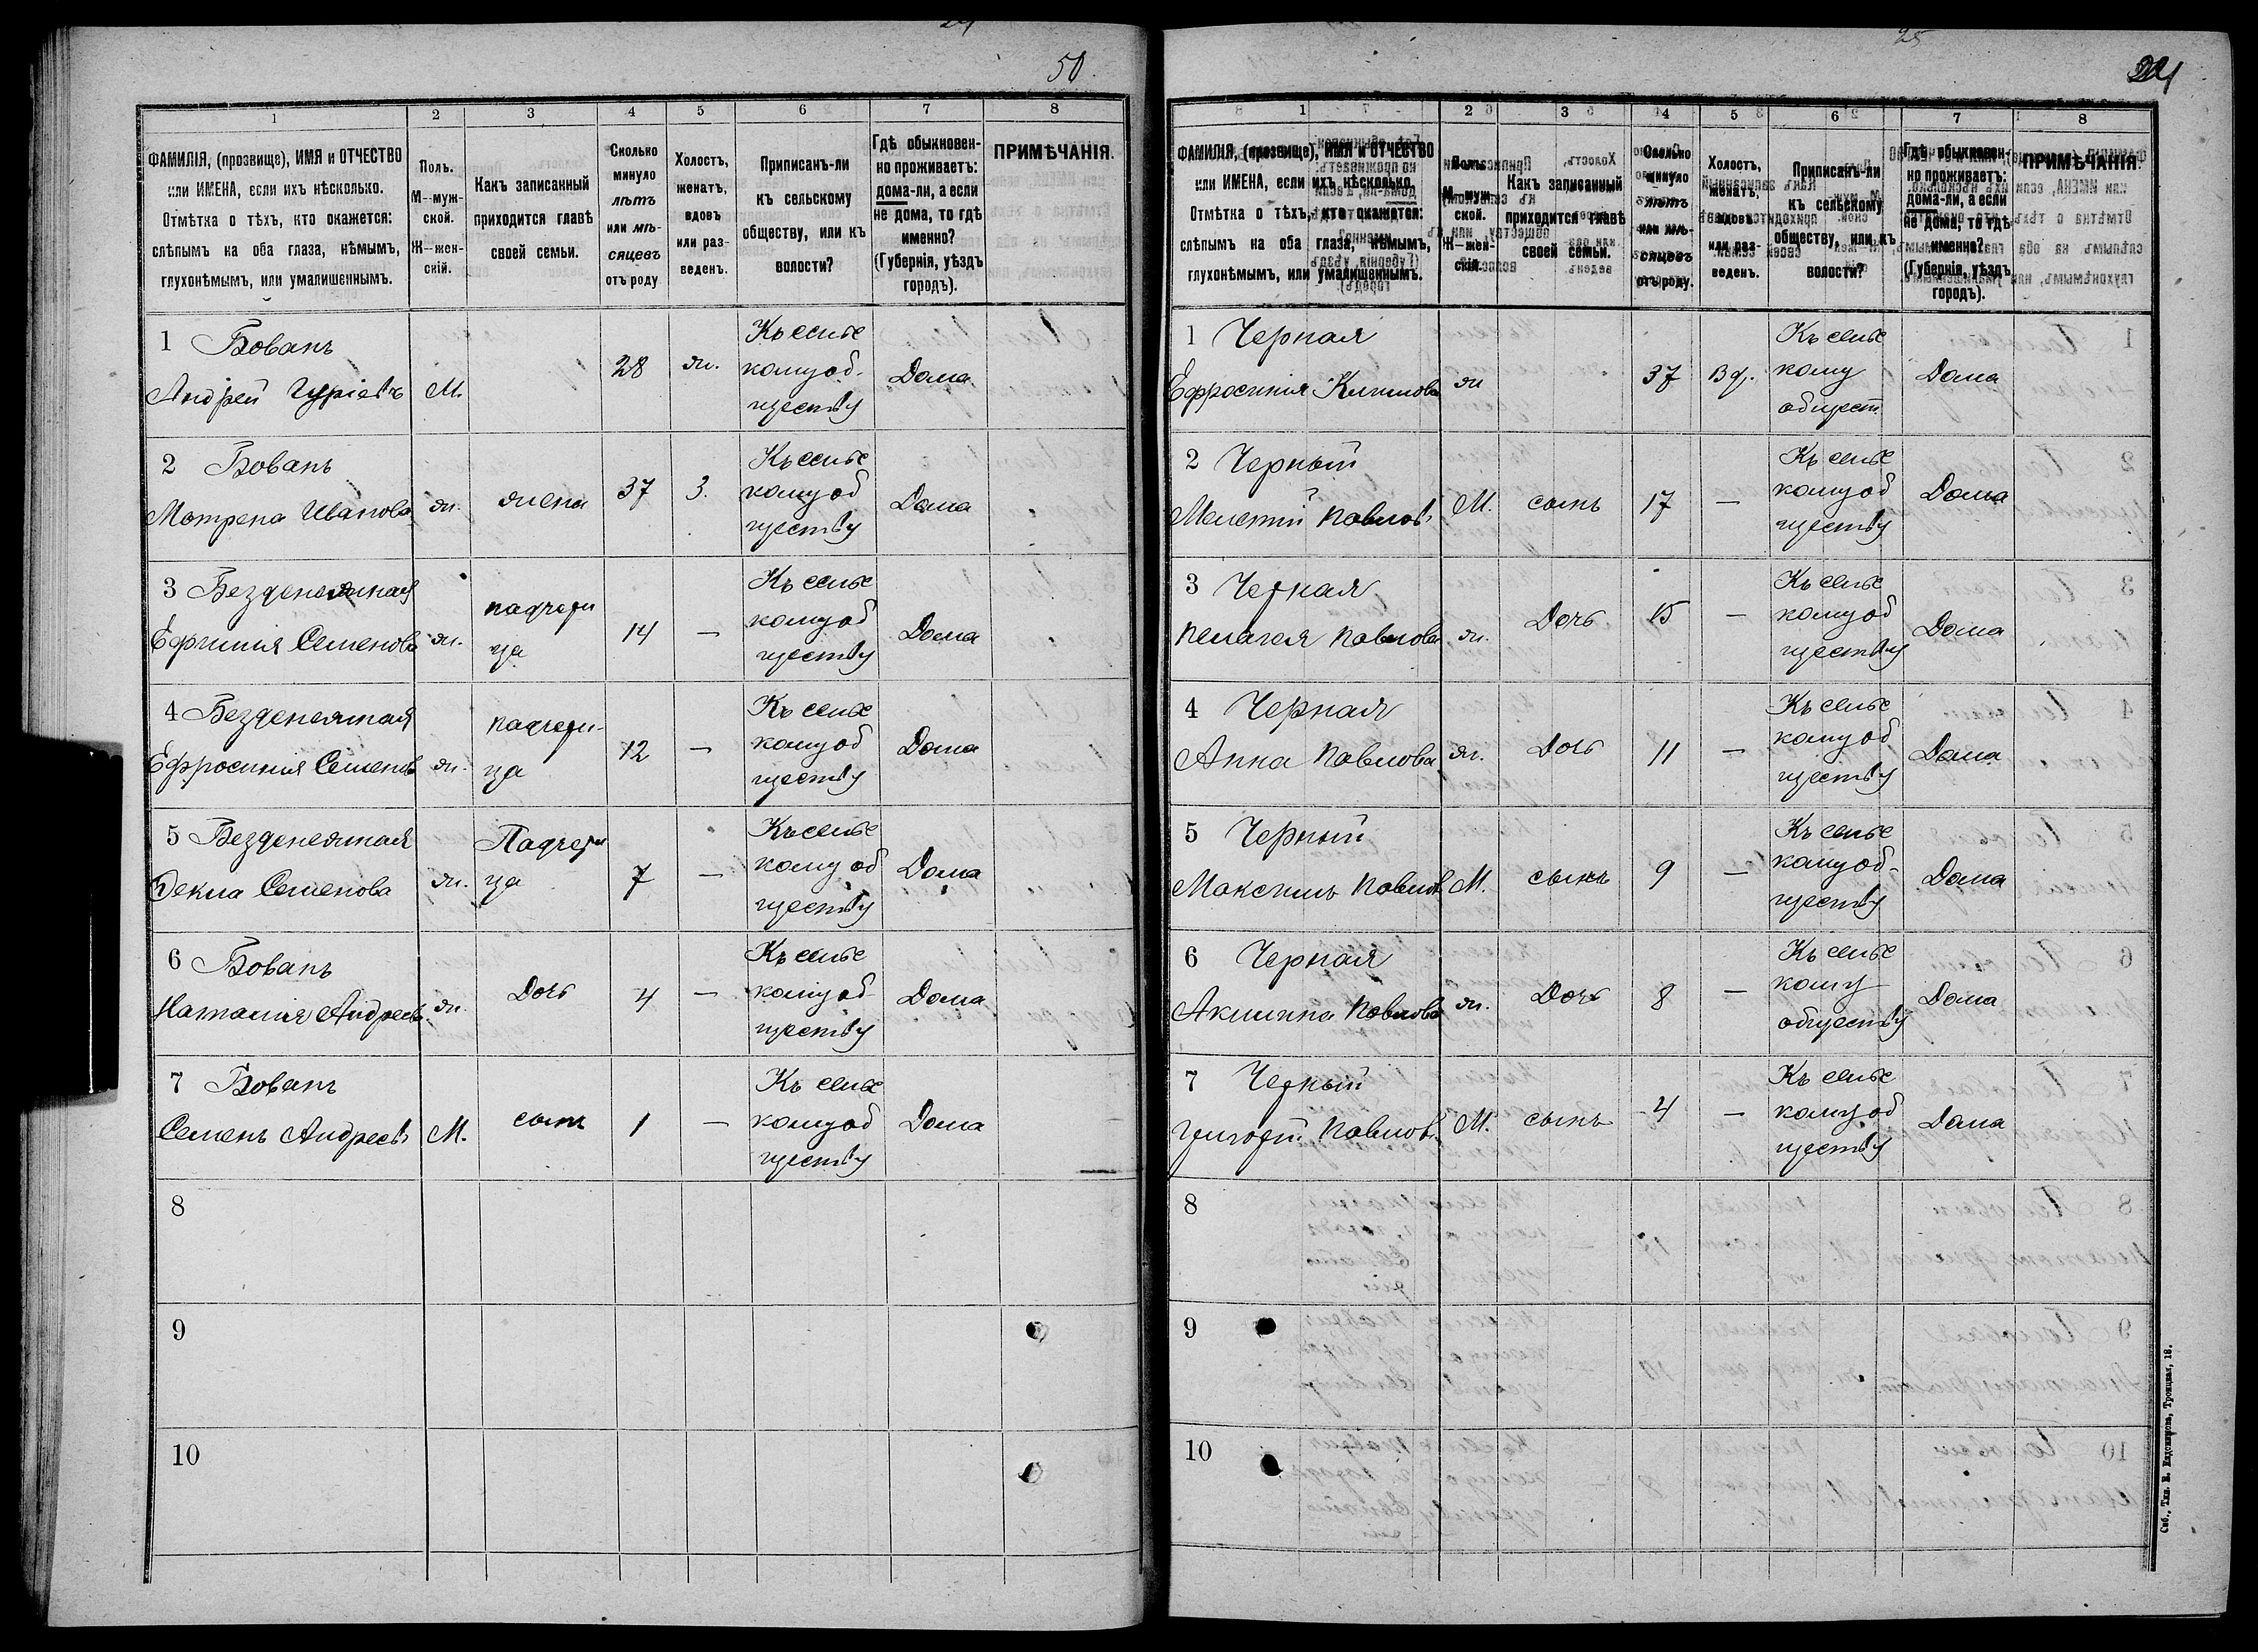 50.
1 2 3 4 5 6 7 8
ФАМИЛІЯ, (прозвище), ИМЯ и ОТЧЕСТВО
или ИМЕНА, если ихъ нѣсколько.
Отмѣтка о тѣхъ, кто окажется:
слѣпымъ на оба глаза, нѣмымъ,
глухонѣмымъ, или умалишеннымъ.
Полъ.
М--муж-
ской.
Ж--жен-
скій.
Какъ записанный
приходится главѣ
своей семьи.
Сколько
минуло
лѣтъ
или мѣ-
сяцевъ
отъ роду
Холостъ,
женатъ,
вдовъ
или раз-
веденъ.
Приписанъ-ли
къ сельскому
обществу, или къ
волости?
Гдѣ обыкновен-
но проживаетъ:
дома-ли, а если
не дома, то гдѣ
именно?
(Губернія, уѣздъ
городъ).
ПРИМѢЧАНІЯ.
1 Бованъ
Андрей Гуріевъ М. 28 ж.
Къ селье
кому об-
ществу
Дома
2 Бованъ
Мотрена Иванова ж. жена 37 3.
Къ селье
кому об
ществу
Дома
3 Безденежная
Ефимія Семенова ж.
падчери
ца
14 —
Къ селье
кому об
ществу
Дома
4 Безденежная
Ефросинія Семенов ж.
падчери-
ца
12 —
Къ селье
кому об
ществу
Дома
5 Безденежная
Фекла Семенова ж.
Падчери
ца
7 —
Къ селье
кому об
ществу
Дома
6 Бованъ
Наталія Андреев ж. Дочь 4 —
Къ селье
кому об-
ществу
Дома
7 Бованъ
Семенъ Андреевъ М. сынъ 1 —
Къ селье
кому об
ществу
Дома
8
9
10
25
1 2 3 4 5 6 7 8
ФАМИЛІЯ, (прозвище), ИМЯ и ОТЧЕСТВО
или ИМЕНА, если ихъ нѣсколько.
Отмѣтка о тѣхъ, кто окажется:
слѣпымъ на оба глаза, нѣмымъ,
глухонѣмымъ, или умалишеннымъ.
Полъ.
М--муж-
ской.
Ж--жен-
скій.
Какъ записанный
приходится главѣ
своей семьи.
Сколько
минуло
лѣтъ
или мѣ-
сяцевъ
отъ роду.
Холостъ,
женатъ,
вдовъ
или раз-
веденъ.
Приписанъ-ли
къ сельскому
обществу, или къ
волости?
Гдѣ обыкновен-
но проживаетъ:
дома-ли, а если
не дома, то гдѣ
именно?
(Губернія, уѣздъ
городъ).
ПРИМѢЧАНІЯ.
1 Черная
Ефросинія Климова ж 37 Вд.
Къ селье
кому
общест
Дома
2 Черный
Мелетий Павловъ М. сынъ 17 —
Къ селье
кому об
ществу
Дома
3 Черная
Пелагея Павлова ж. Дочь 15 —
Къ селье
кому об
ществу
Дома
4 Черная
Анна Павлова ж. Дочь 11 —
Къ селье
кому об
ществу
Дома
5 Черный
Максимъ Павлов М. сынъ 9 —
Къ селье
кому об-
ществу
Дома
6 Черная
Акилина Павлова ж. Дочь 8 —
Къ селье
кому
обществу
Дома
7 Черный
Григорій Павловъ М. сынъ 4 —
Къ селье
кому об
ществу
Дома
8
9
10